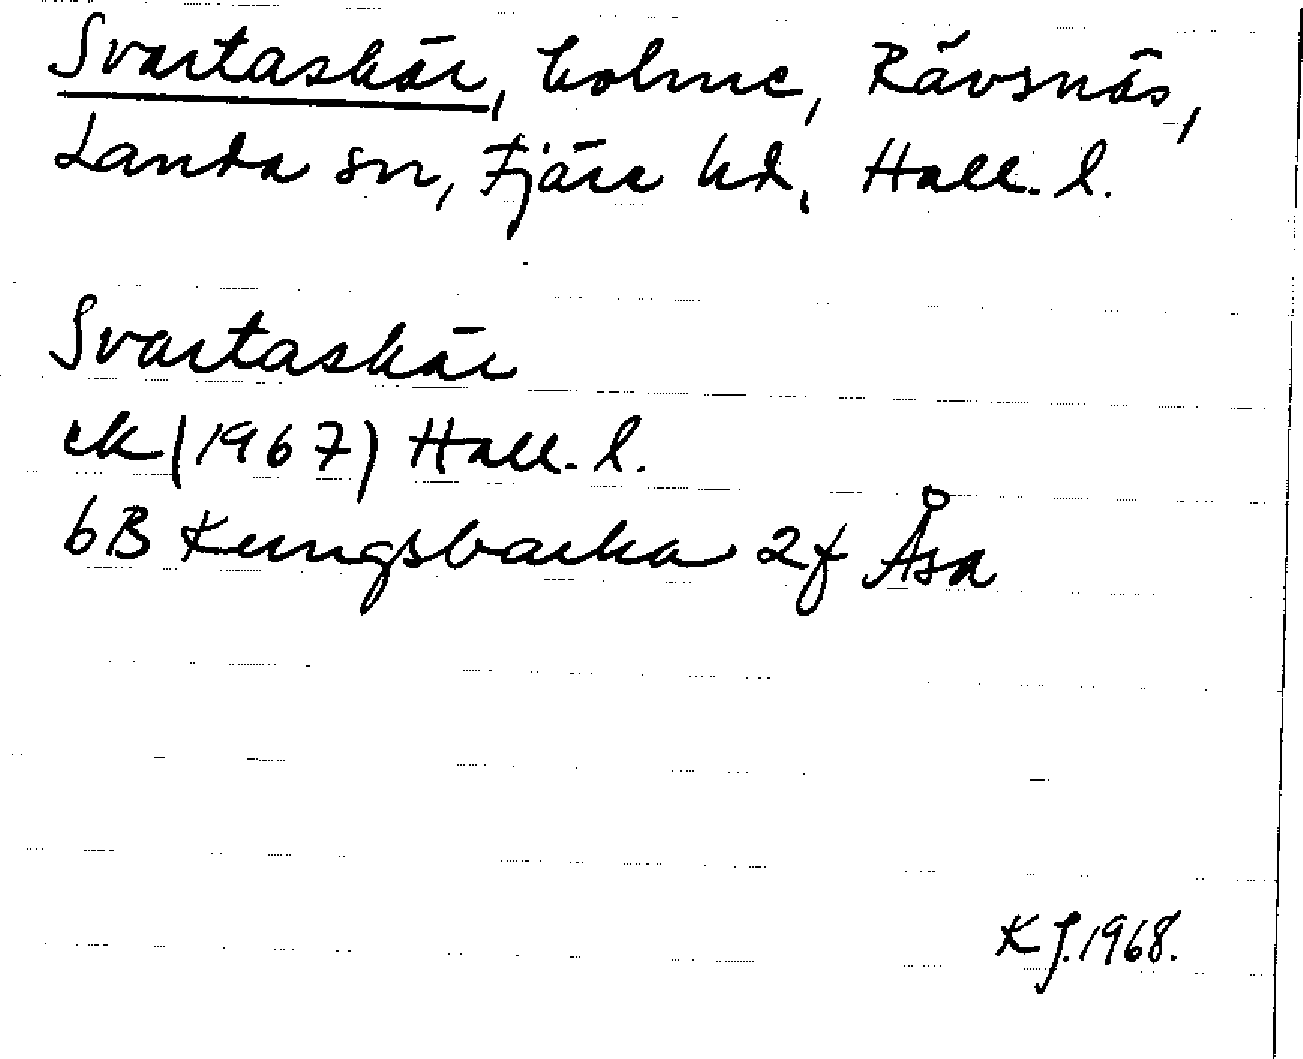 Svartaskär, holme, Rävsnäs,
Landa sn, Fjäre hd, Hall. l.
Svartaskär
ek (1967) Hall. l.
6B Kungsbacka 2f Åsa
KJ. 1968.